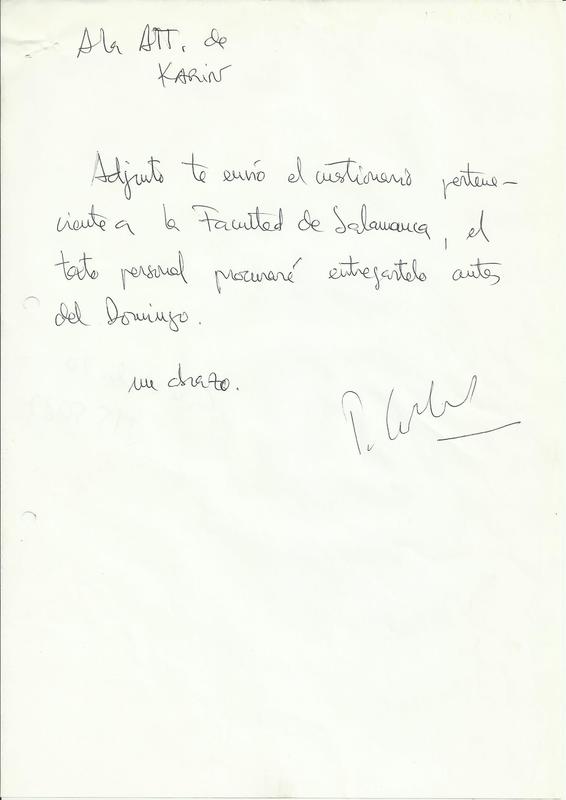 A la ATT. de
KARIN
Adjunto te envió el cuestionario pertene-
ciente a la Facultad de Salamanca, el
texto personal procuraré entregartelo antes
del Domingo.
un abrazo.